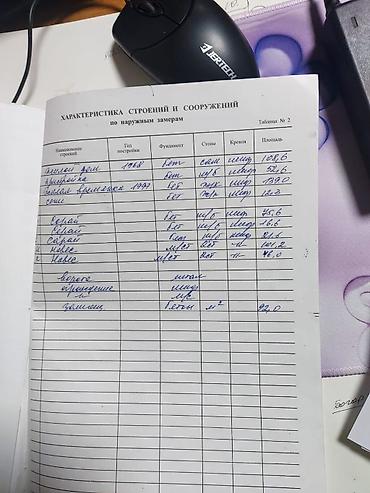 JERTECH
ХАРАКТЕРИСТИКА СТРОЕНИЙ И СООРУЖЕНИЙ
по наружным замерам
Таблица № 2
Наименование строений Год постройки Фундамент Стены Кровля Площадь
жилой дом 1968 бет сам шифр 108,6
пристройка бет ш/б шифр 52,6
жилая времянка 1997 бет шифр 139,0
бет шифр 12,3
Сарай бет ш/б шифр 75,6
Сарай бет ш/б шифр 16,6
Сарай бет ш/б шифр 21,6
Навес м/ст 101,2
Навес м/ст 46,0
ворота
ограждение шифр
бетон м² 92,0